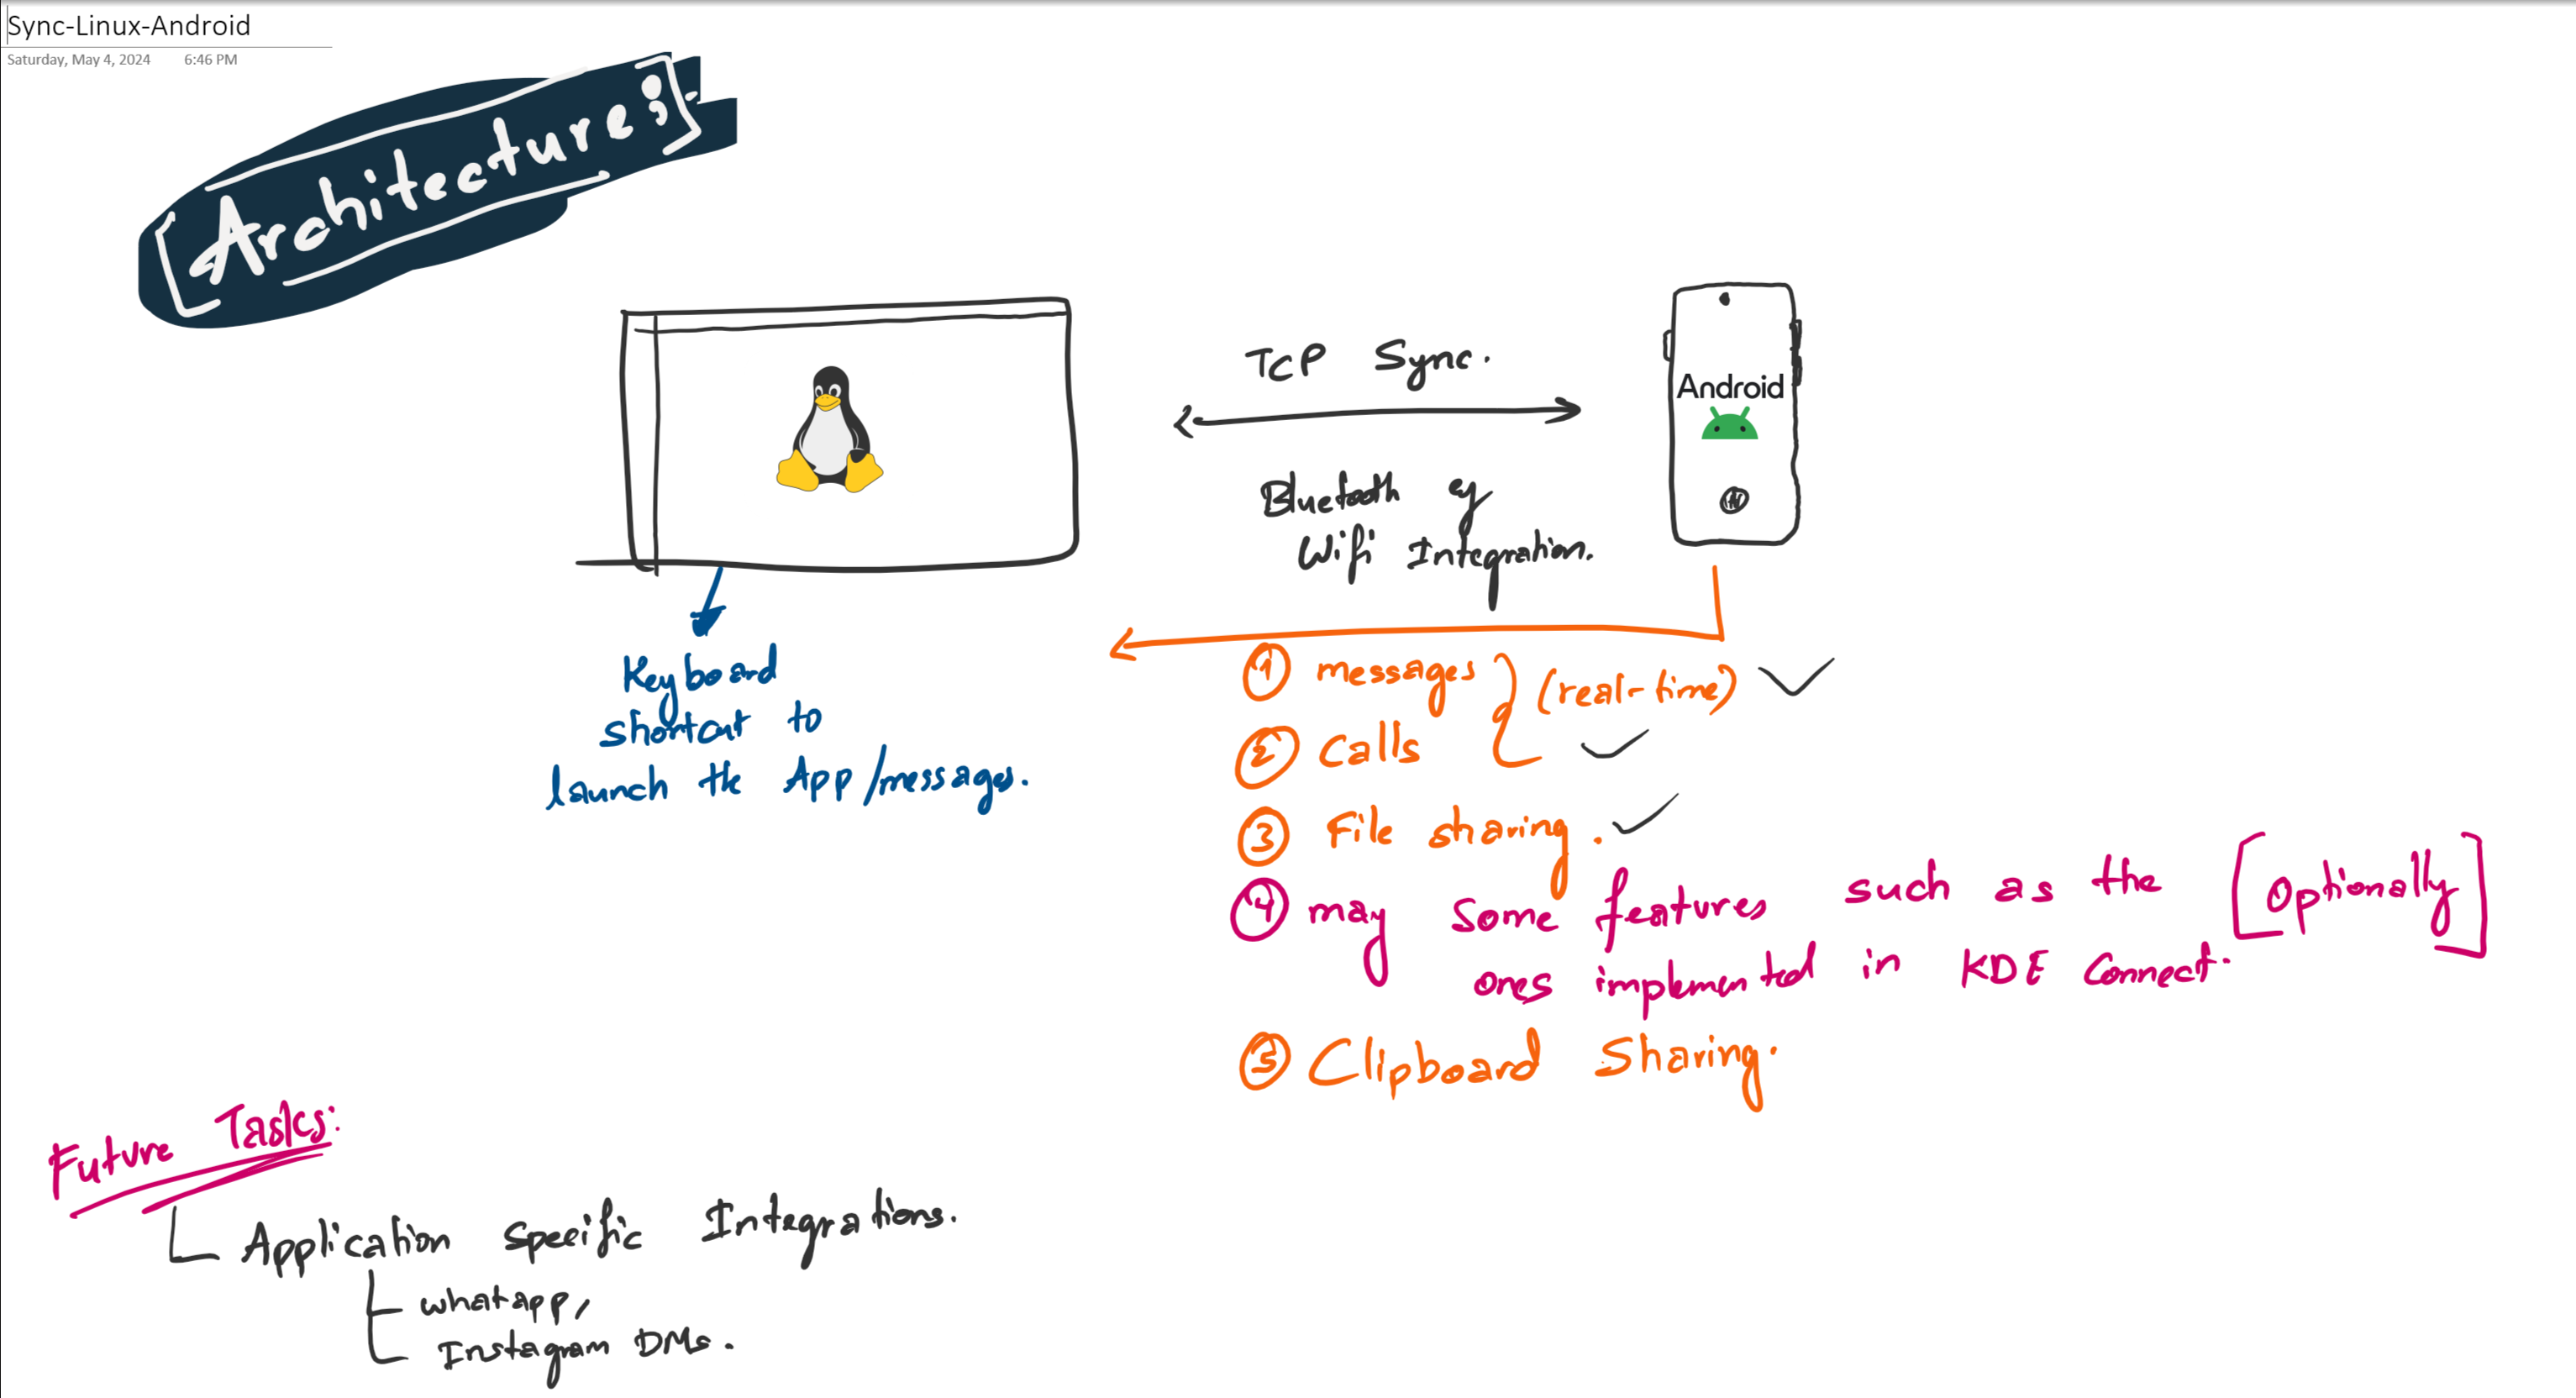 Sync-Linux-Android
Saturday, May 4, 2024 6:46 PM
[Architecture:].
TCP Sync.
Android
Bluetooth &
Wifi Integration.
Keyboard
shortcut to
launch the App/messages.
① messages } (real-time) ✓
② calls ✓
③ File sharing. ✓
④ may some features such as the [Optionally]
ones implemented in KDE Connect.
⑤ Clipboard Sharing.
Future Tasks:
Application Specific Integrations.
whatapp,
Instagram DMs.